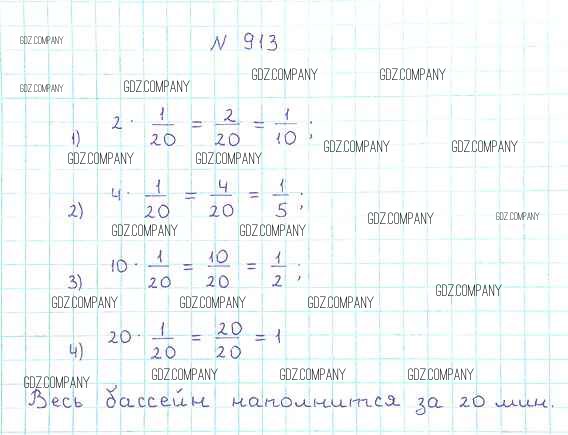 N 913
GDZ.COMPANY
GDZ.COMPANY GDZ.COMPANY
GDZ.COMPANY GDZ.COMPANY
1) 2 · 1/20 = 2/20 = 1/10 ;
GDZ.COMPANY GDZ.COMPANY
GDZ.COMPANY GDZ.COMPANY
2) 4 · 1/20 = 4/20 = 1/5 ;
GDZ.COMPANY GDZ.COMPANY
GDZ.COMPANY GDZ.COMPANY
3) 10 · 1/20 = 10/20 = 1/2 ;
GDZ.COMPANY
GDZ.COMPANY GDZ.COMPANY GDZ.COMPANY
4) 20 · 1/20 = 20/20 = 1
GDZ.COMPANY GDZ.COMPANY GDZ.COMPANY GDZ.COMPANY
Весь бассейн наполнится за 20 мин.